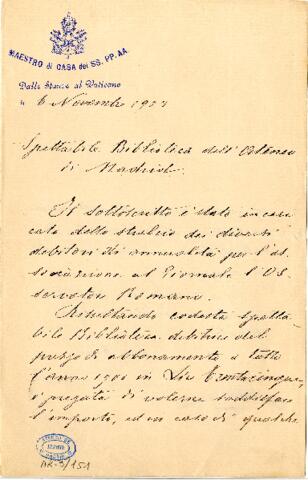 MAESTRO di CASA dei SS. PP. AA.
Dalle Stanze al Vaticano
li 6 Novembre 1901
Spettabile Biblioteca dell'Ateneo
di Madrid.
Il sottoscritto è stato incari
cato dello stralcio dei diversi
debitori di annualità per l'as
sociazione al Giornale l'Os
servatore Romano.
Risultando codesta Spetta
bile Biblioteca debitrice del
prezzo di abbonamento a tutto
l'anno 1900 in Lire Trentacinque,
è pregata di volerne soddisfare
l'importo, ed in caso di qualche
AR-3/151